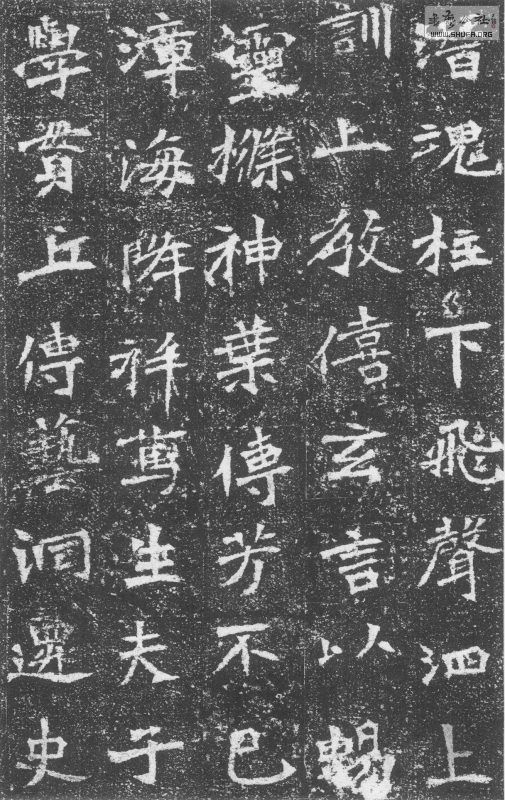 潜魂柱下飛聲泗上
訓上教僖玄言以暢
靈條神葉傳芳不已
漳海降祥篤生夫子
學貫丘傳藝洞遷史
书艺公社
WWW.SHUFA.ORG